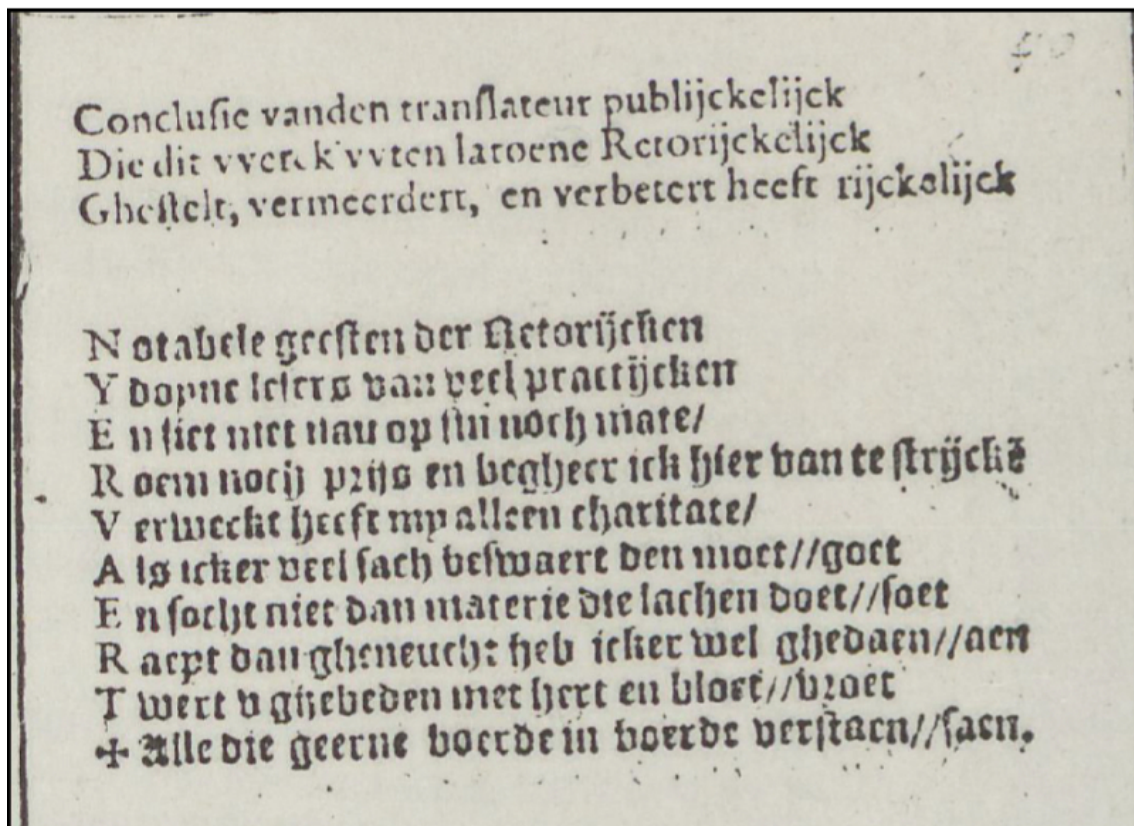 40
Conclusie vanden translateur publijckelijck
Die dit vverck vvten latoene Retorijckelijck
Ghestelt, vermeerdert, en verbetert heeft rijckelijck
N otabele geesten der Retorijcken
Y doyne lesers van veel practijcken
E n siet niet nau op stii noch mate/
R oem noch prijs en begheer ick hier van te strijckē
V erweckt heeft my alleen charitate/
A ls icker veel sach beswaert den moet//goet
E n socht niet dan materie die lachen doet//soet
R aept dan gheneucht heb icker wel ghedaen//aen
T wert v ghebeden met hert en bloet//vroet
✠ Alle die geerne boerde in boerde verstaen//saen.